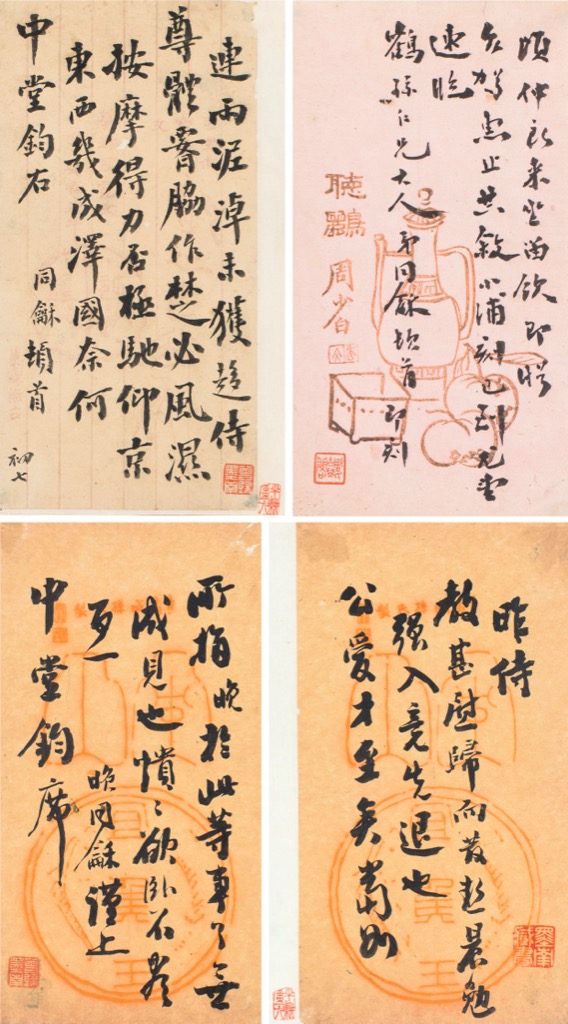 連雨泥淖未獲趨侍
尊體脇作楚必風濕
按摩得力否極馳仰京
東西幾成澤國奈何
中堂鈞右
同龢頓首
初七
頃仲來坐留飲即
駕惠止共敘小浦刻已到尤
速臨
鶴孫仁兄大人 弟同龢頓首 即刻
聽鸝
周少白
昨侍
教甚慰歸而發熱晨勉
強入竟先退也
公愛才至矣
所指晚於此等事了無
成見也憒〻欲臥不盡
百一
中堂鈞席
晚同龢謹上